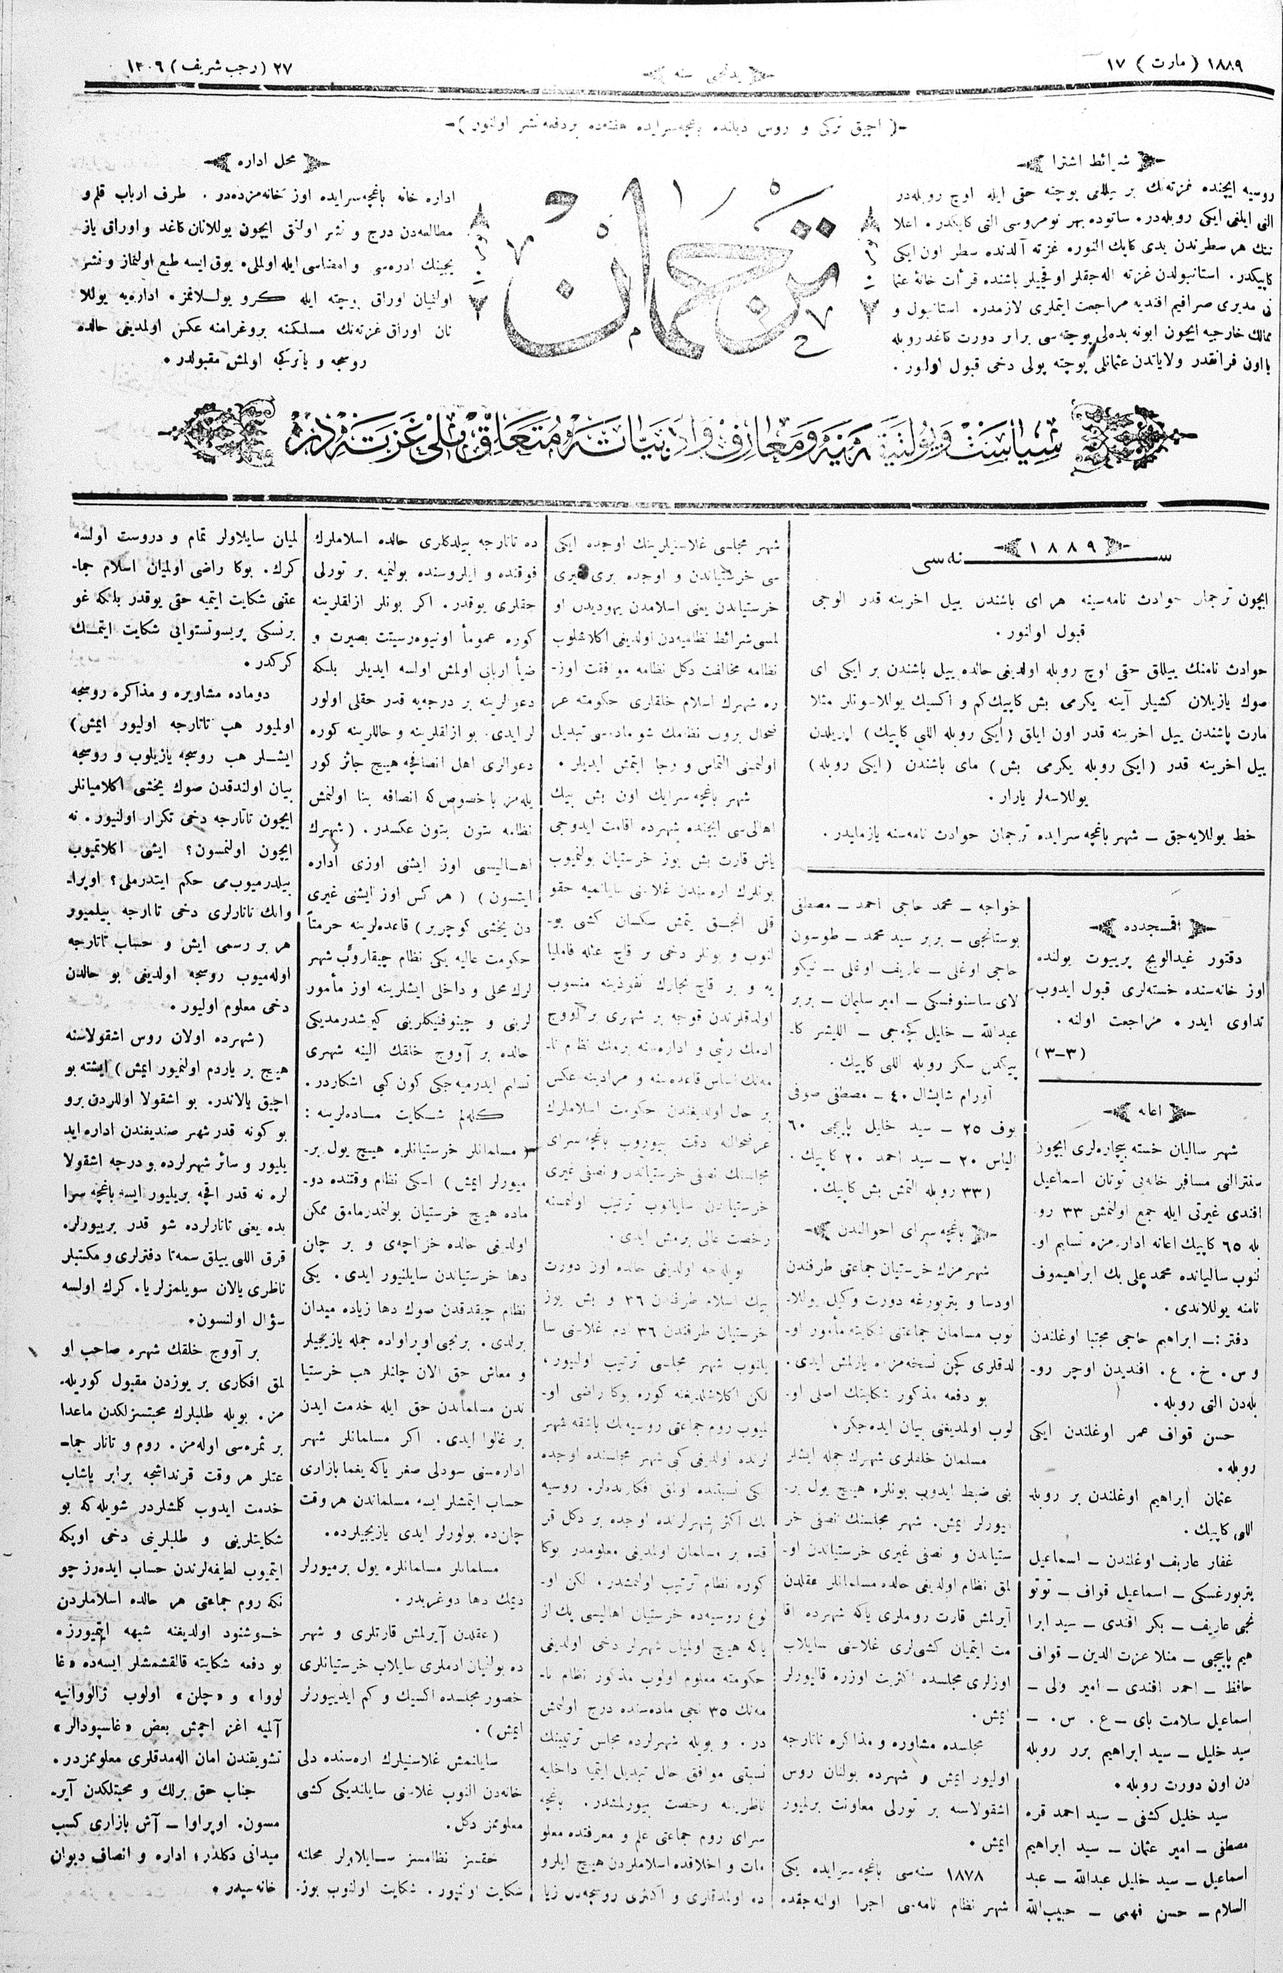 ١٨٨٩ ( مارت ) ١٧
يدنجى سنه
٢٧ ( رجب شريف ) ١٣٠٦
-( آچيق تركى و روس ديلنده باغچه‌سرايده هفته‌ده بر دفعه نشر اولنور )-
شرائط اشترا
روسيه ايچنده غزته‌نك بر ييللغى پوچته حقى ايله اوچ روبله‌در
التى ايلغى ايكى روبله‌در. ساتوده بهر نومروسى التى كاپكدر. اعلا
ننك هر سطرندن يدى كاپك النوره غزته آلدنده سطر اون ايكى
كاپيكدر. استانبولدن غزته
نى مديرى صرافيم افنديه مراجعت ايتملرى لازمدر. استانبول و
ممالك خارجيه ايچون ابونه بدهلى پوچته‌سى برابر دورت كاغد روبله
يا اون فرانقدر ولاياتدن عثمانلى پوچته پولى دخى قبول اولور.
ترجمان
محل اداره
اداره خانه باغچه‌سرايده اوز خانه‌مزده‌در. طرف ارباب قلم و
مطالعه‌دن درج و نشر اولنق ايچون يوللانان كاغد و اوراق ياز
يجينك ادره‌سى و امضاسى ايله اولملى. يوق ايسه طبع اولنماز و نشر
اولنيان اوراق پوچته ايله كرو يوللانمز. اداره‌يه يوللا
نان اوراق غزته‌نك مسلكنه پروغرامنه عكس اولمديغى حالده
روسجه و يا تركجه اولمش مقبولدر.
سياست و پولتيقه مدنيه و معارف و ادبياته متعلق ملى غزته‌در
١٨٨٩
سنه‌سى
ايچون ترجمان حوادث نامه‌سينه هر اى باشندن ييل اخرينه قدر الوجى
قبول اولنور.
حوادث نامنك ييللق حقى اوچ روبله اولديغى حالده ييل باشندن بر ايكى اى
صوك يازيلان كشيلر آينه يكرمى بش كاپيك كم و اكسيك يوللاسونلر مثلا
مارت باشندن ييل اخرينه قدر اون ايلق (ايكى روبله اللى كاپيك) اپريلدن
ييل اخرينه قدر (ايكى روبله يكرمى بش) ماى باشندن (ايكى روبله)
يوللاسه‌لر يارار.
خط يوللايه‌جق ــ شهر باغچه‌سرايده ترجمان حوادث نامه‌سنه يازمليدر.
اقمسجدده
دقتور غيدالويچ پريبوت يولنده
اوز خانه‌سنده خسته‌لرى قبول ايدوب
تداوى ايدر. مراجعت اولنه.
(٣-٣)
اعانه
شهر ساليان خسته بيچاره‌لرى ايچون
سنترالنى مسافر خانه‌يى توتان اسماعيل
افندى غيرتى ايله جمع اولنمش ٣٣ رو
بله ٦٥ كاپيك اعانه اداره‌مزه تسليم او
لنوب ساليانده محمد على بك ابراهيموف
نامنه يوللاندى.
دفتر:ــ ابراهيم حاجى مجتبا اوغلندن
و س. خ. ع. افنديدن اوچر رو-
بله‌دن التى روبله.
حسن قواف عمر اوغلندن ايكى
روبله.
عثمان ابراهيم اوغلندن بر روبله
اللى كاپيك.
غفار عاريف اوغلندن ــ اسماعيل
پتربورغسكى ــ اسماعيل قواف ــ توتو
نجى عاريف ــ بكر افندى ــ سيد ابرا
هيم پاپيجى ــ منلا عزت الدين ــ قواف
حافظ ــ احمد افندى ــ امير ولى ــ
اسماعيل سلامت باى ــ ع. س. ــ
سيد خليل ــ سيد ابراهيم برر روبله
دن اون دورت روبله.
سيد خليل كشفى ــ سيد احمد قره
مصطفى ــ امير عثمان ــ سيد ابراهيم
اسماعيل ــ سيد خليل عبدالله ــ عبد
السلام ــ حسن فهمى ــ حبيب‌الله
خواجه ــ محمد حاجى احمد ــ مصطفى
بوستانجى ــ بربر سيد محمد ــ طوسون
حاجى اوغلى ــ عاريف اوغلى ــ نيكو
لاى ساسنوفسكى ــ امير سليمان ــ بربر
عبدالله ــ خليل
پيكدن سكز روبله اللى كاپيك.
آورام شاپشال ٤٠ ــ مصطفى صوفى
يوف ٢٥ ــ سيد خليل پاپيجى ٦٠
الياس ٢٠ ــ سيد احمد ٢٠ كاپيك.
(٣٣ روبله التمش بش كاپيك.
باغچه‌سراى احوالندن
شهرمزك خرستيان جماعتى طرفندن
اودسا و پتربورغه دورت وكيل يوللا-
نوب مسلمان جماعتى شكايته مأمور او-
لدقلرى كچن نسخه‌مزده يازلمش ايدى.
بو دفعه مذكور شكايتك اصلى او-
لوب اولمديغنى بيان ايده‌جكز.
مسلمان خلقلرى شهرك جمله ايشلر
ينى ضبط ايدوب بونلره هيچ يول بر-
ميورلر ايمش. شهر مجلسنك نصفى خر
ستياندن و نصفى غيرى خرستياندن او-
لمق نظام اولديغى حالده مسلمانلر عقلدن
آيرلمش قارت روملرى ياكه شهرده اقا
مت ايتميان كشى‌لرى غلاسنى سايلاب
اوزلرى مجلسده اكثريت اوزره قاليورلر
ايمش.
مجلسده مشاوره و مذاكره تاتارجه
اوليور ايمش و شهرده بولنان روس
اشقولاسنه بر تورلى معاونت برلميور
ايمش.
١٨٧٨ سنه‌سى باغچه‌سرايده يكى
شهر نظام نامه‌سى اجرا اوله‌جقده
شهر مجلسى غلاسنيلرينك اوچده ايكى
سى خرستياندن و اوچده برى غيرى
خرستياندن يعنى اسلامدن يهوديدن او
لمسى شرائط نظاميه‌دن اولديغى اكلاشلوب
نظامه مخالفت دكل نظامه موافقت اوز-
ره شهرك اسلام خلقلرى حكومته عر
ضحال بروب نظامك شو ماده‌سى تبديل
اولنمسنى التماس و رجا ايتمش ايديلر.
شهر باغچه‌سرايك اون بش بيك
اهالى‌سى ايچنده شهرده اقامت ايدوجى
ياش قارت بش يوز خرستيان بولنميوب
بونلرك اره‌سندن غلاسنى سايلانميه حقو
قلى انجق يتمش سكسان كشى بو-
لنوب و بونلر دخى بر قاچ عائله فاميليا
يه و بر قاچ تجارك نفوذينه منسوب
اولدقلرندن قوجه بر شهرى بر آووچ
ادمك رئيى و اداره‌سنه برمك نظام نا-
مه‌نك اساس قاعده‌سنه و مرادينه عكس
بر حال اولديغندن حكومت اسلاملرك
عرضحالنه دقت بيوروب باغچه‌سراى
مجلسنك نصفى خرستياندن و نصفى غيرى
خرستياندن سايلانوب ترتيب اولنمسنه
رخصت عالى برمش ايدى.
بويله‌جه اولديغى حالده اون دورت
بيك اسلام طرفندن ٣٦ و بش يوز
خرستيان طرفندن ٣٦ دم غلاسنى سا
يلانوب شهر مجلسى ترتيب اوليور.
لكن اكلاشلديغنه كوره بوكا راضى او-
لميوب روم جماعتى روسيه‌نك باشقه شهر
لرنده اولديغى كبى شهر مجلسنده اوچده
ايكى نسبتده اولمق افكارنده‌لر. روسيه
نك اكثر شهرلرنده اوچده بر دكل قر
قده بر مسلمان اولديغى معلومدر بوكا
كوره نظام ترتيب اولنمشدر. لكن او-
نوع روسيه‌ده خرستيان اهاليسى پك از
ياكه هيچ اولميان شهرلر دخى اولديغى
حكومته معلوم اولوب مذكور نظام نا-
مه‌نك ٣٥ نجى ماده‌سنده درج اولنمش
در. و بويله شهرلرده مجلس ترتيبنك
نسبتى موافق حال تبديل ايتميا داخليه
ناظرينه رخصت بيورلمشدر. باغچه
سراى روم جماعتى علم و معرفتده معلو
مات و اخلاقده اسلاملردن هيچ ايلرو
ده اولمدقلرى و اكثرى روسجه‌دن زيا
ده تاتارجه بيلدكلرى حالده اسلاملرك
فوقنده و ايلروسنده بولنميه بر تورلى
حقلرى يوقدر. اكر بونلر ازلقلرينه
كوره عموماً اونيورسيتت بصيرت و
ضيأ اربابى اولمش اولسه ايديلر بلكه
دعوالرينه بر درجه‌يه قدر حقلى اولور
لر ايدى. بو ازلقلرينه و حاللرينه كوره
دعوالرى اهل انصافجه هيچ جائز كور
يله‌مز با خصوص كه انصافه بنا اولنمش
نظامه ستون بتون عكسدر. (شهرك
اهاليسى اوز ايشنى اوزى اداره
ايتسون) (هر كس اوز ايشنى غيرى
دن يخشى كوچرير) قاعده‌لرينه حرمتاً
حكومت عاليه يكى نظام چيقاروب شهر
لرك محلى و داخلى ايشلرينه اوز مأمور
لرينى و چينوفنيكلرينى كيرشدرمديكى
حالده بر آووچ خلقك الينه شهرى
تسليم ايدرميه‌جكى كون كبى اشكاردر.
كله‌لم شكايت ماده‌لرينه :
( مسلمانلر خرستيانلره هيچ يول بر-
ميورلر ايمش ) ايسكى نظام وقتنده دو-
ماده هيچ خرستيان بولنمدرمامق ممكن
اولديغى حالده خزاچه‌ى و بر چان
دها خرستياندن سايلنيور ايدى. يكى
نظام چيقدقدن صوك دها زياده ميدان
برلدى. برنجى اوراواده جمله يازيجيلر
و معاش حق الان چانلر هب خرستيا
ندن مسلماندن حق ايله خدمت ايدن
بر غالوا ايدى. اكر مسلمانلر شهر
اداره‌سنى سودلى صغر ياكه يغما بازارى
حساب ايتمشلر ايسه مسلماندن هر وقت
چان‌ده بولورلر ايدى يازيجيلرده.
مسلمانلر مسلمانلره يول برميورلر
ديمك دها دوغريدر.
(عقلدن آيرلمش قارتلرى و شهر
ده بولنيان ادملرى سايلاب خرستيانلرى
خصور مجلسده اكسيك و كم ايدييورلر
ايمش).
سايلانمش غلاسنيلرك اره‌سنده دلى
خانه‌دن النوب غلاسنى سايلنديكى كشى
معلوممز دكل.
حقسز نظامسز سايلاولر محلنه
شكايت اولنيور. شكايت اولنوب بوز.
لميان سايلاولر تمام و دروست اولسه
كرك. بوكا راضى اولميان اسلام جما-
عتنى شكايت ايتميه حقى يوقدر بلكه غو
برنسكى پريسوتستوايى شكايت ايتمك
كركدر.
دوماده مشاويره و مذاكره روسجه
اولميور هب تاتارجه اوليور ايمش)
ايشلر هب روسجه يازيلوب و روسجه
بيان اولندقدن صوك يخشى اكلاميانلر
ايچون تاتارجه دخى تكرار اولنيور. نه
ايچون اولنمسون؟ ايشى اكلاتميوب
بيلدرميوب‌مى حكم ايتدرملى؟ اوپرا-
وانك تاتارلرى دخى تاتارجه بيلميور
هر بر رسمى ايش و حساب تاتارجه
اوله‌ميوب روسجه اولديغى بو حالدن
دخى معلوم اوليور.
(شهرده اولان روس اشقولاسنه
هيچ بر ياردم اولنميور ايمش) ايشته بو
اچيق يالاندر. بو اشقولا اوللردن برو
بو كونه قدر شهر صنديغندن اداره ايد
يليور و سائر شهرلرده بو درجه اشقولا
لره نه قدر اقچه بريليور ايسه باغچه‌سرا
يده يعنى تاتارلرده شو قدر برييورلر.
قرق اللى ييللق سمه‌تا دفترلرى و مكتبلر
ناظرى يالان سويلمزلر يا. كرك اولسه
سؤال اولنسون.
بر آووچ خلقك شهره صاحب او
لمق افكارى بر يوزدن مقبول كوريله-
مز. بويله طلبلرك محبتسزلكدن ماعدا
بر ثمره‌سى اوله‌مز. روم و تاتار جما-
عتلر هر وقت قرنداشجه برابر ياشاب
خدمت ايدوب كلمشلردر شويله كه بو
شكايتلرينى و طلبلرينى دخى اوپكه
ايتميوب لطيفه‌لرندن حساب ايده‌رز چو
نكه روم جماعتى هر حالده اسلاملردن
خوشنود اولديغنه شبهه ايتميورز.
بو دفعه شكايته قالقشمشلر ايسه‌ده «غا
لووا» و «چلن» اولوب ژالووانيه
آلميه اغز اچمش بعض «غاسپودالر»
تشويقندن امان اله‌مدقلرى معلوممزدر.
جناب حق برلك و محبتلكدن آير-
مسون. اوپراوا ــ آش بازارى كسب
ميدانى دكلدر؛ اداره و انصاف ديوان
خانه‌سيدر.